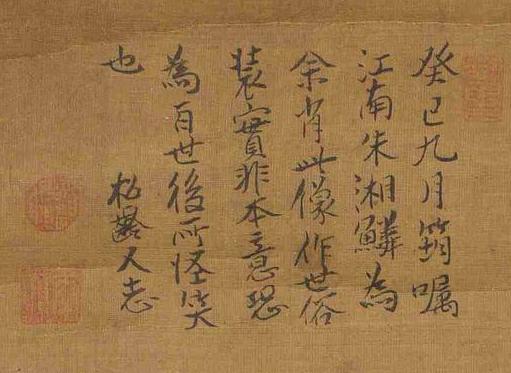 癸巳九月筠囑
江南朱湘鱗為
余肖此像作世俗
裝實非本意恐
為百世後所怪笑
也 松齡又志